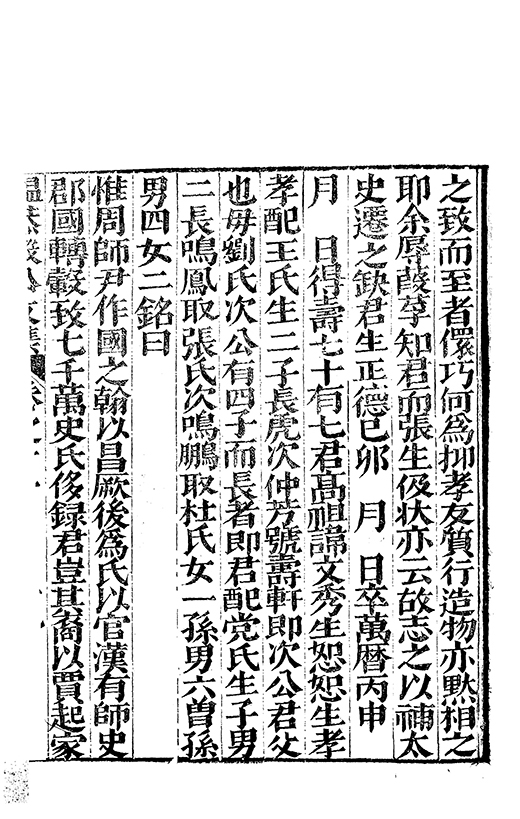 之致而至者儇巧何為抑孝友質行造物亦黙相之
耶余辱葭莩知君而張生伋状亦云故志之以補太
史遷之缺君生正德己卯　月　日卒萬暦丙申
月　日得壽七十有七君髙祖諱文秀生恕恕生孝
孝配王氏生二子長虎次仲芳號壽軒即次公君父
也毋劉氏次公有四子而長者即君配党氏生子男
二長鳴鳳取張氏次鳴鵬取杜氏女一孫男六曽孫
男四女二銘曰
惟周師尹作國之翰以昌厥後為氏以官漢有師史
郡國轉轂致七千萬史氏侈録君豈其裔以賈起家
温恭毅公文集　卷之十